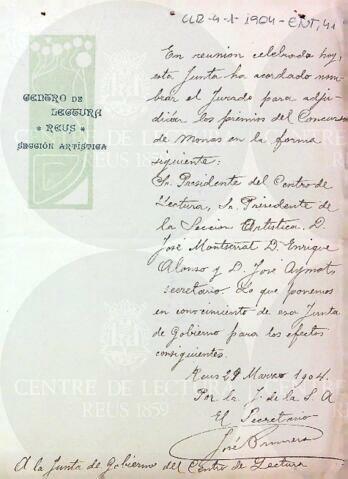 CLR-4-1-1904-ENT, 41
CENTRO DE
LECTURA
REUS
SECCIÓN ARTÍSTICA
En reunión celebrada hoy,
esta Junta ha acordado nom-
brar el Jurado para adju-
dicar los premios del Concurso
de Monas en la forma
siguiente:
Sr. Presidente del Centro de
Lectura, Sr. Presidente de
la Seccion Artistica, D.
José Montserrat D. Enrique
Alonso y D. José Aymat
secretario. Lo que ponemos
en conocimiento de esa Junta
de Gobierno para los efectos
consiguientes.
Reus 29 Marzo 1904.
Por la J. de la S. A
El Secretario
José
A la Junta de Gobierno del Centro de Lectura
CENTRE DE LECTURA
REUS 1859
CENTRE DE LECTURA
REUS 1859